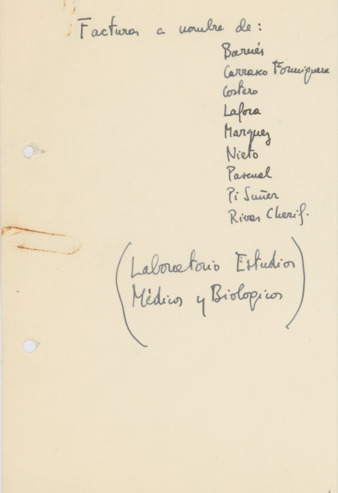 Facturas a nombre de:
Barnés
Carrasco Formiguera
Costero
Lafora
Marquez
Nieto
Pascual
Pi Suñer
Rivas Cherif.
(Laboratorio Estudios
Médicos y Biologicos)